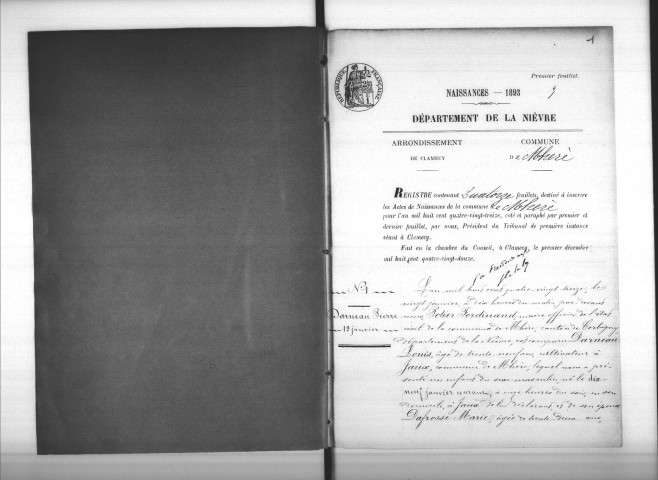 1
Premier feuillet.
RÉPUBLIQUE FRANÇAISE
NAISSANCES — 1893
DÉPARTEMENT DE LA NIÈVRE
ARRONDISSEMENT
DE CLAMECY
COMMUNE
de Mhère
REGISTRE contenant quatorze feuillets, destiné à inscrire
les Actes de Naissances de la commune de Mhère
pour l'an mil huit cent quatre-vingt-treize, coté et paraphé par premier et
dernier feuillet, par nous, Président du Tribunal de première instance
séant à Clamecy.
Fait en la chambre du Conseil, à Clamecy, le premier décembre
mil huit cent quatre-vingt-douze.
N° 1
Darneau Pierre
19 janvier
L'an mil huit cent quatre-vingt-treize, le
vingt janvier, à dix heures du matin, par devant
nous Ferdinand, maire officier de l'état
civil de la commune de Mhère, canton de Corbigny
département de la Nièvre, est comparu Darneau
Louis, âgé de trente-neuf ans, cultivateur à
Jaux, commune de Mhère, lequel nous a pré-
senté un enfant du sexe masculin, né le dix-
neuf janvier courant, à onze heures du soir, en son
domicile, à Jaux de lui déclarant, et de son épouse
Marie, âgée de trente deux ans,